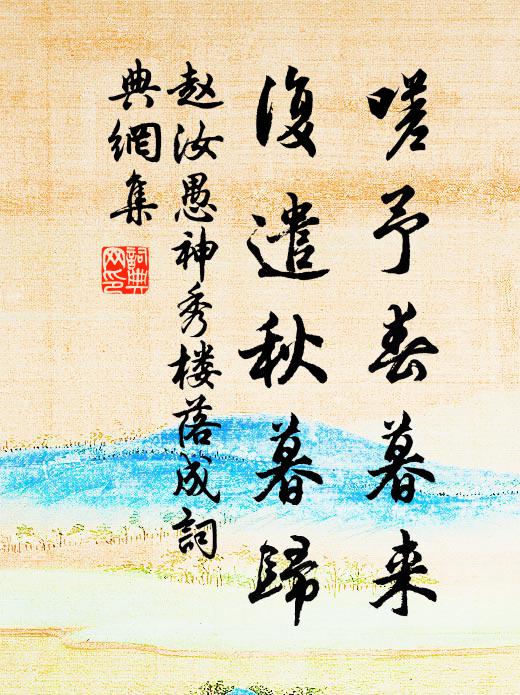 嗟予春暮来
復遣秋暮歸
赵汝愚神秀楼落成詞
典網集
詞典
网印